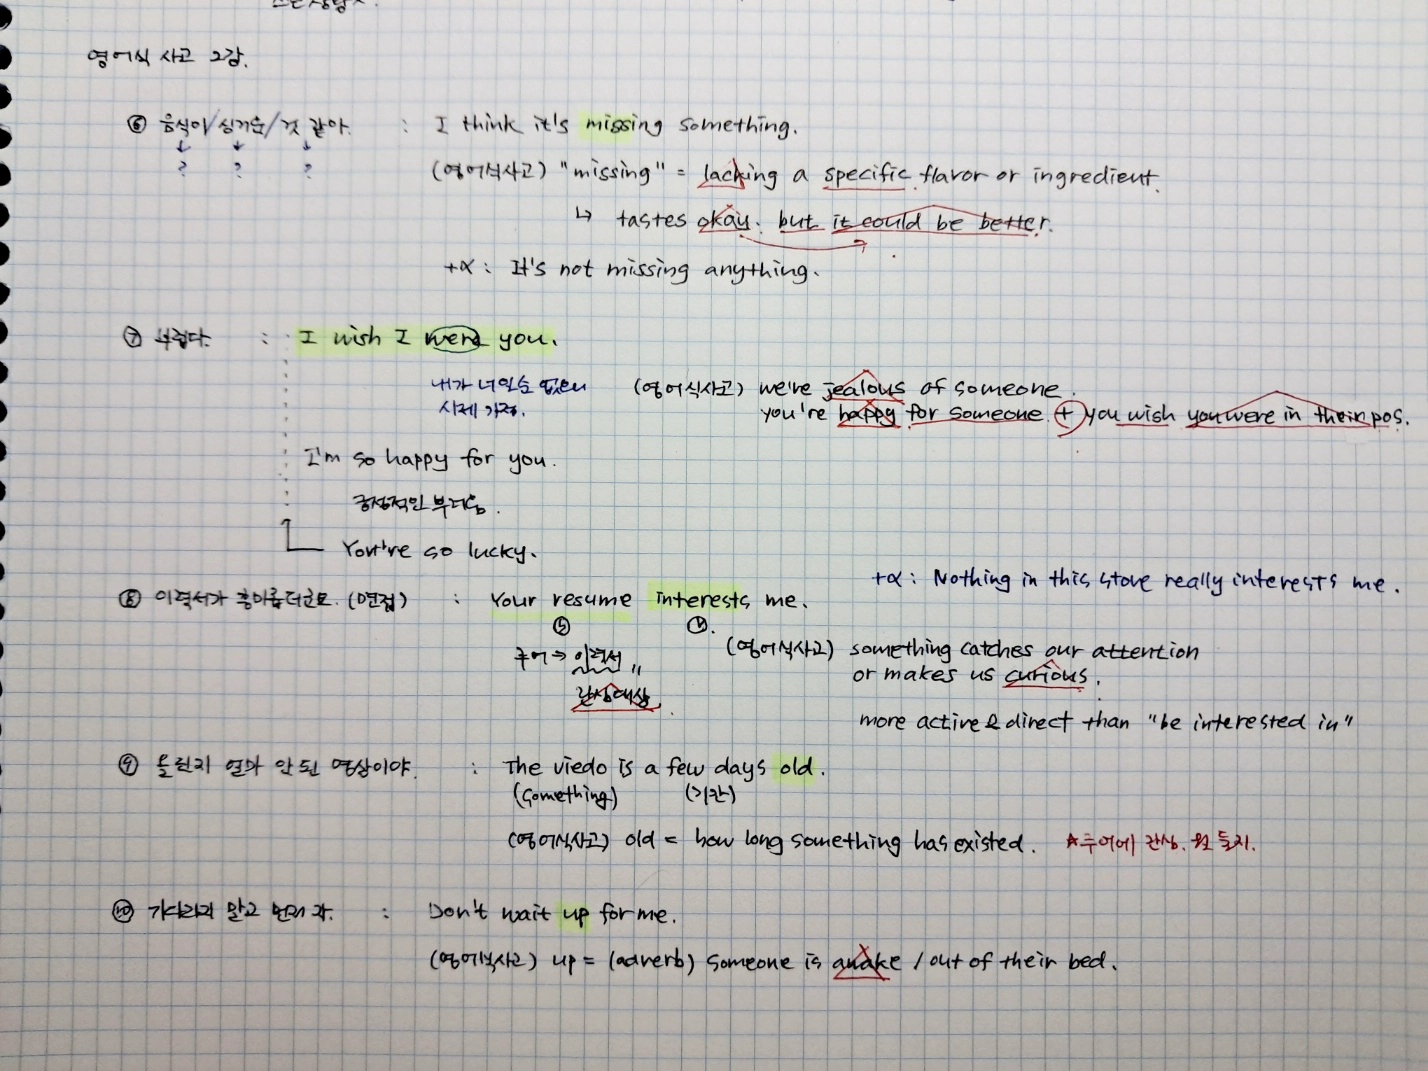 영어식 사고 2강.
⑥ 음식이/싱거운/것 같아. : I think it's missing something.
? ? ?
(영어식사고) "missing" = lacking a specific flavor or ingredient.
↳ tastes okay. but it could be better.
+α : It's not missing anything.
⑦ 부럽다. : I wish I were you.
내가 너일 수 없으니
시제 가정.
(영어식사고) we're jealous of someone.
you're happy for someone + you wish you were in their pos.
I'm so happy for you.
긍정적인 부러움.
You're so lucky.
+α : Nothing in this store really interests me.
⑧ 이력서가 흥미롭더군요. (면접) : Your resume interests me.
Ⓢ Ⓥ.
주어 → 이력서
"
관심대상.
(영어식사고) something catches our attention
or makes us curious.
more active & direct than "be interested in"
⑨ 올린지 얼마 안 된 영상이야. : The viedo is a few days old.
(Something) (기간)
(영어식사고) old = how long something has existed. ★주어에 관심. 뭘 둘지.
⑩ 기다리지 말고 먼저 자. : Don't wait up for me.
(영어식사고) up = (adverb) someone is awake / out of their bed.